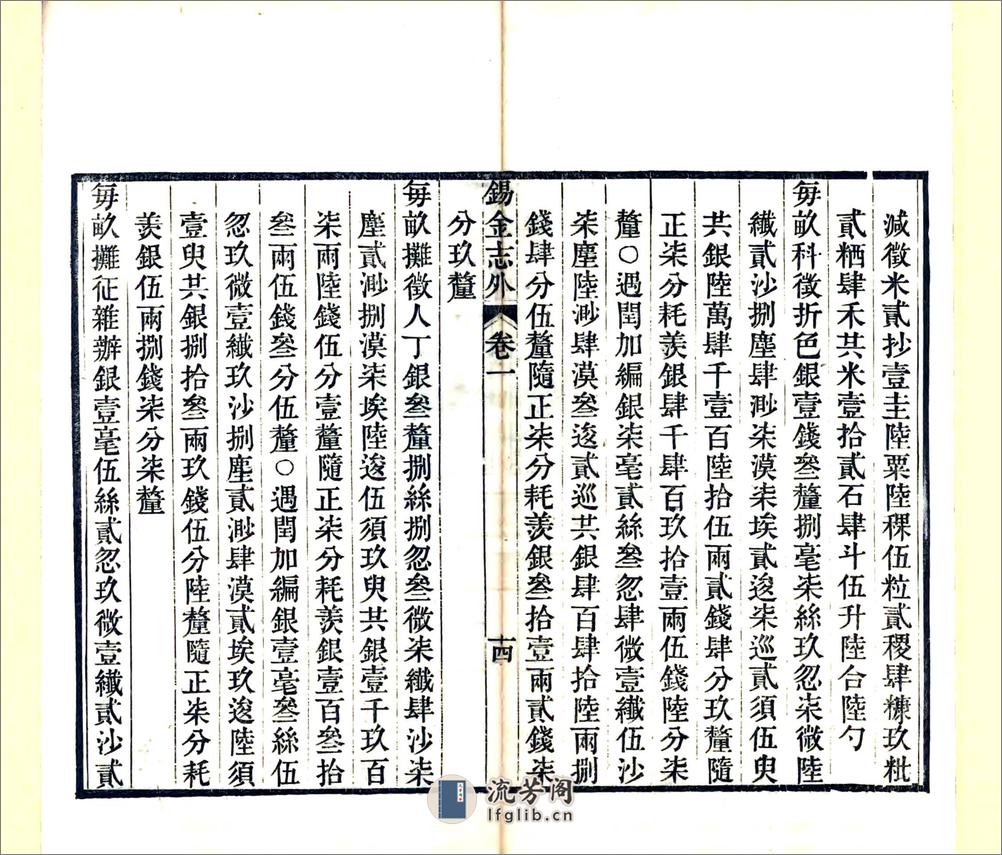 減徵米貳抄壹圭陸粟陸稞伍粒貳稷肆糠玖粃
貳粞肆禾共米壹拾貳石肆斗伍升陸合陸勺
每畝科徵折色銀壹錢叁釐捌毫柒絲玖忽柒微陸
纖貳沙捌塵肆渺柒漠柒埃貳逡柒巡貳須伍臾
共銀陸萬肆千壹百陸拾伍兩貳錢肆分玖釐隨
正柒分耗羨銀肆千肆百玖拾壹兩伍錢陸分柒
釐〇遇閏加編銀柒毫貳絲叁忽肆微壹纖伍沙
柒塵陸渺肆漠叁逡貳巡共銀肆百肆拾陸兩捌
錢肆分伍釐隨正柒分耗羨銀叁拾壹兩貳錢柒
錫金志外 卷一 十四
分玖釐
每畝攤徵人丁銀叁釐捌絲捌忽叁微柒纖肆沙柒
塵貳渺捌漠柒埃陸逡伍須玖臾共銀壹千玖百
柒兩陸錢伍分壹釐隨正柒分耗羨銀壹百叁拾
叁兩伍錢叁分伍釐〇遇閏加編銀壹毫叁絲伍
忽玖微壹纖玖沙捌塵貳渺肆漠貳埃玖逡陸須
壹臾共銀捌拾叁兩玖錢伍分陸釐隨正柒分耗
羨銀伍兩捌錢柒分柒釐
每畝攤征雜辦銀壹毫伍絲貳忽玖微壹纖貳沙貳
流芳阁
lfglib.cn